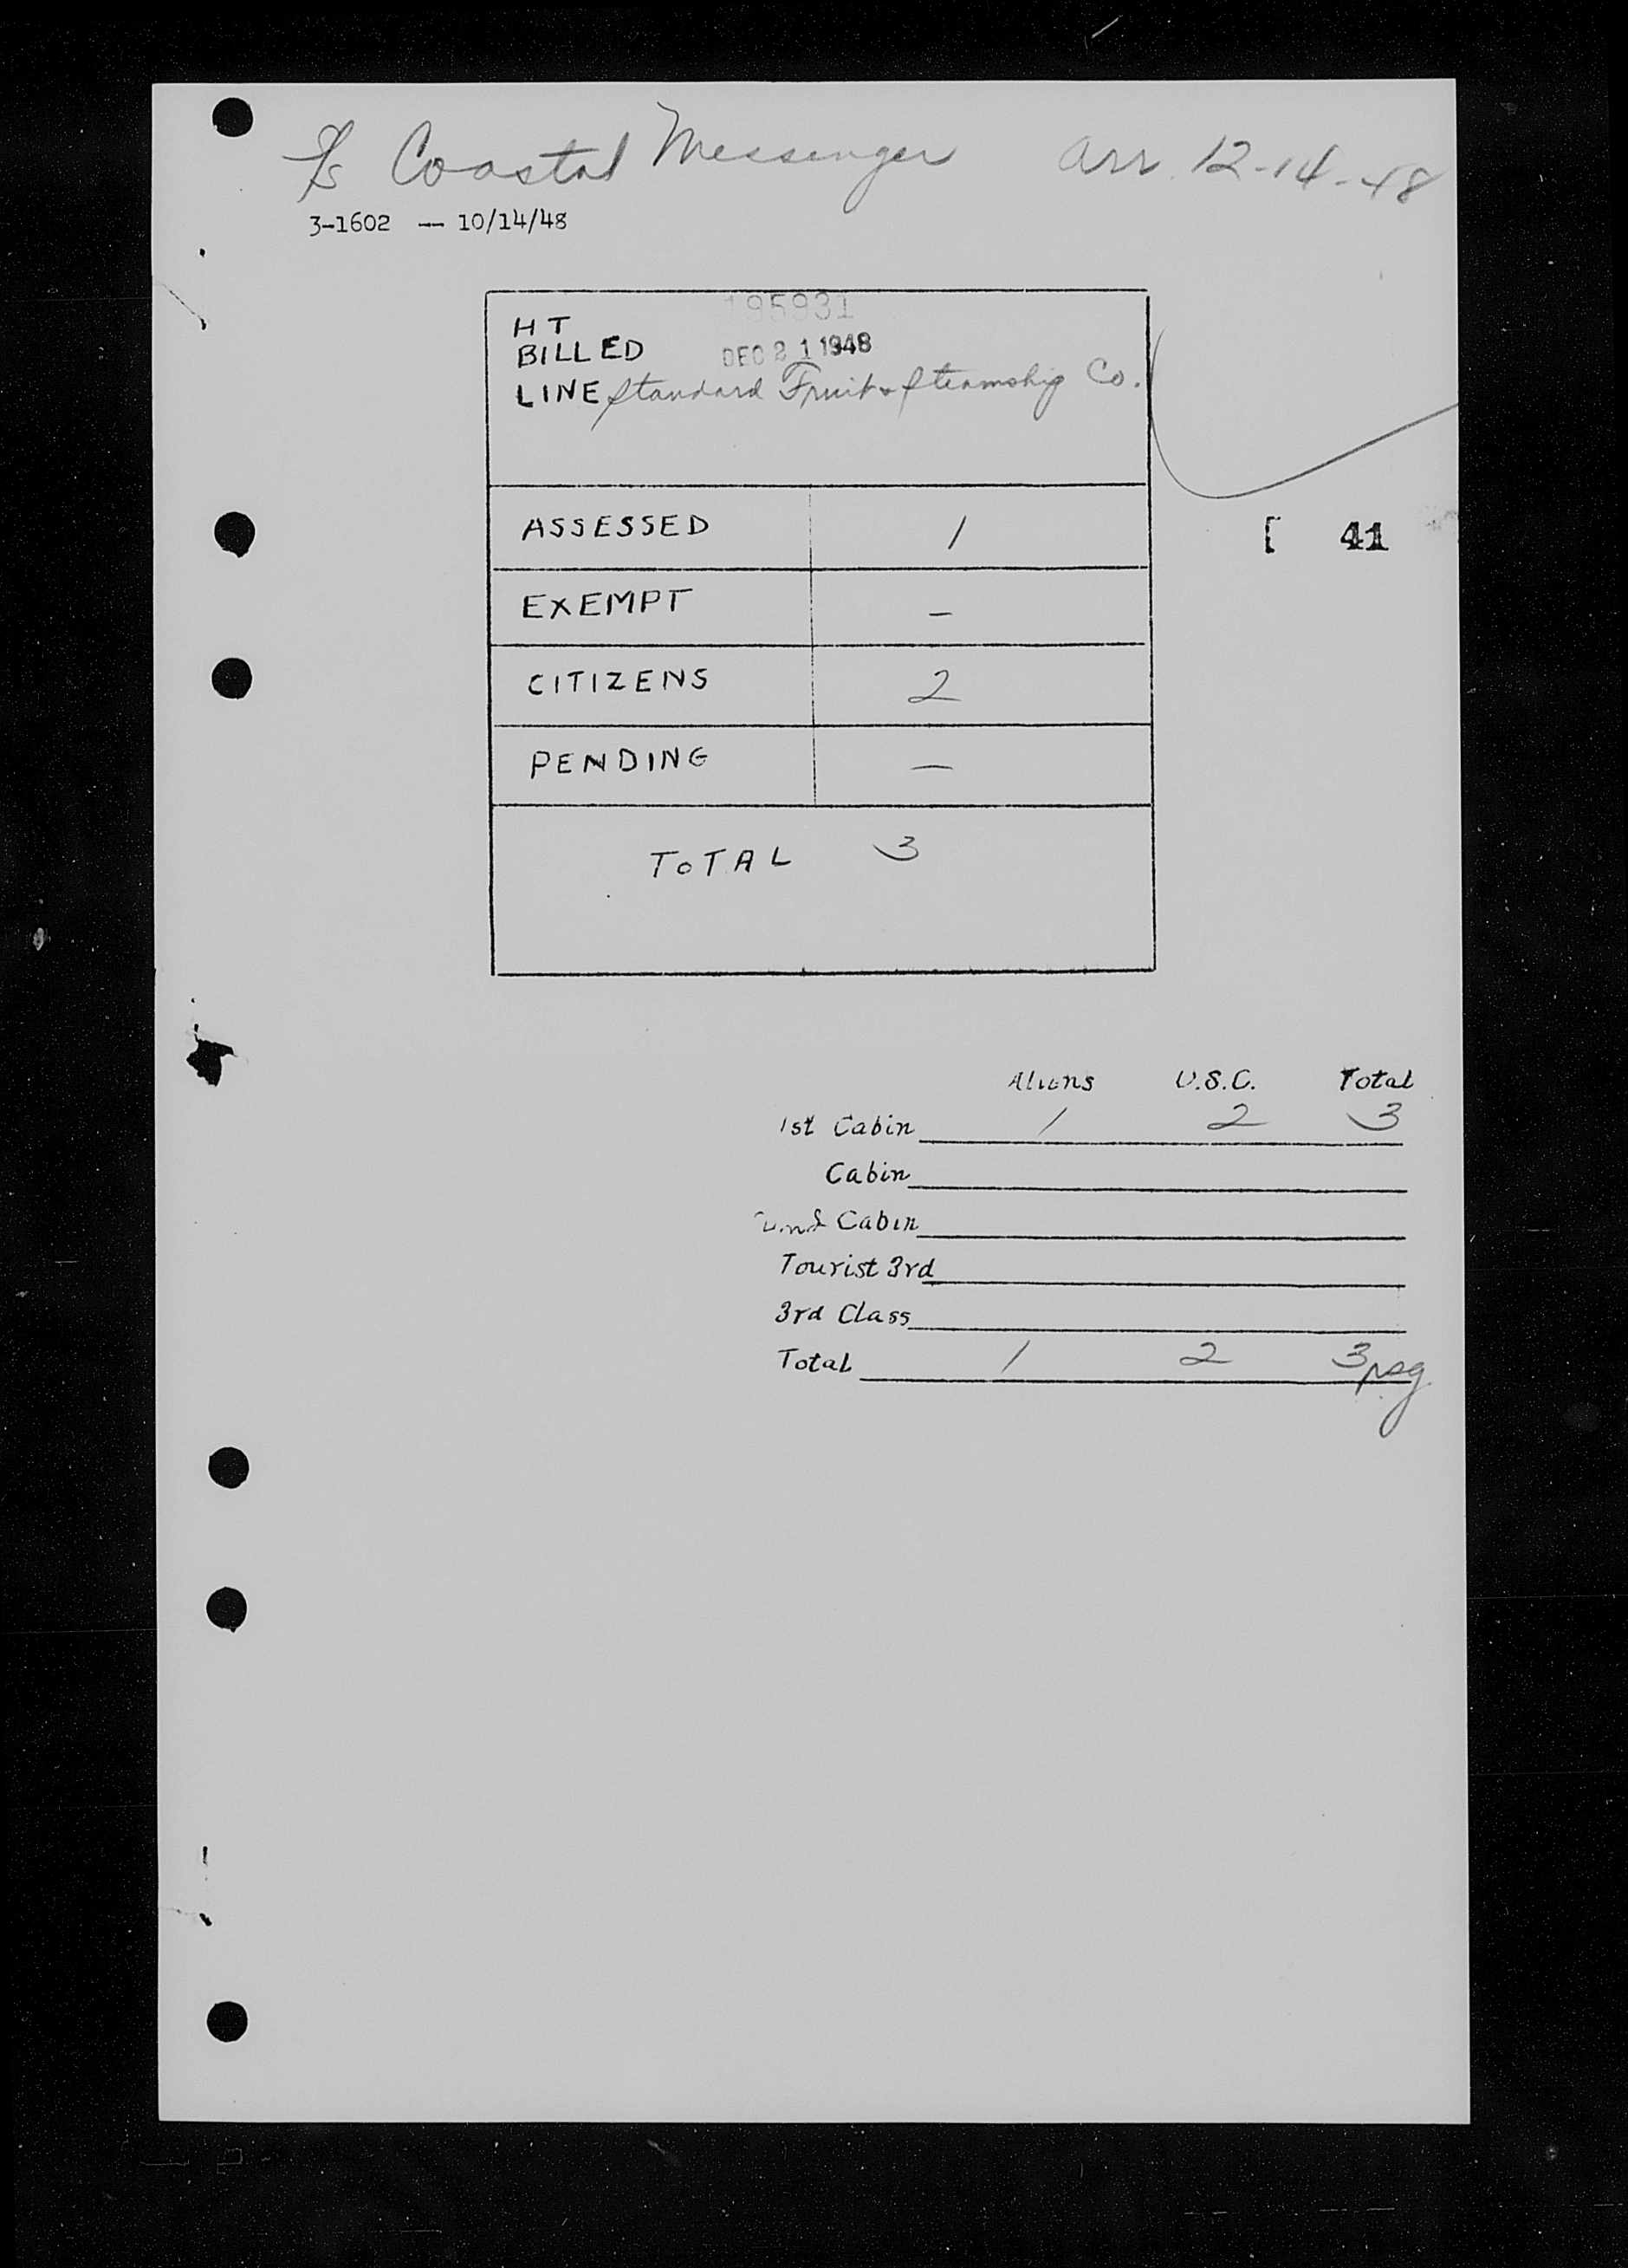 S/S Coastal Messenger arr. 12-14-48
3-1602 -- 10/14/48
195931
HT
BILLED DEC 21 1948
LINE Standard Fruit & Steamship Co.
[ 41
ASSESSED 1
EXEMPT –
CITIZENS 2
PENDING –
TOTAL 3
Aliens U.S.C. Total
1st Cabin 1 2 3
Cabin
Cabin
Tourist 3rd
3rd Class
Total 1 2 3 psg